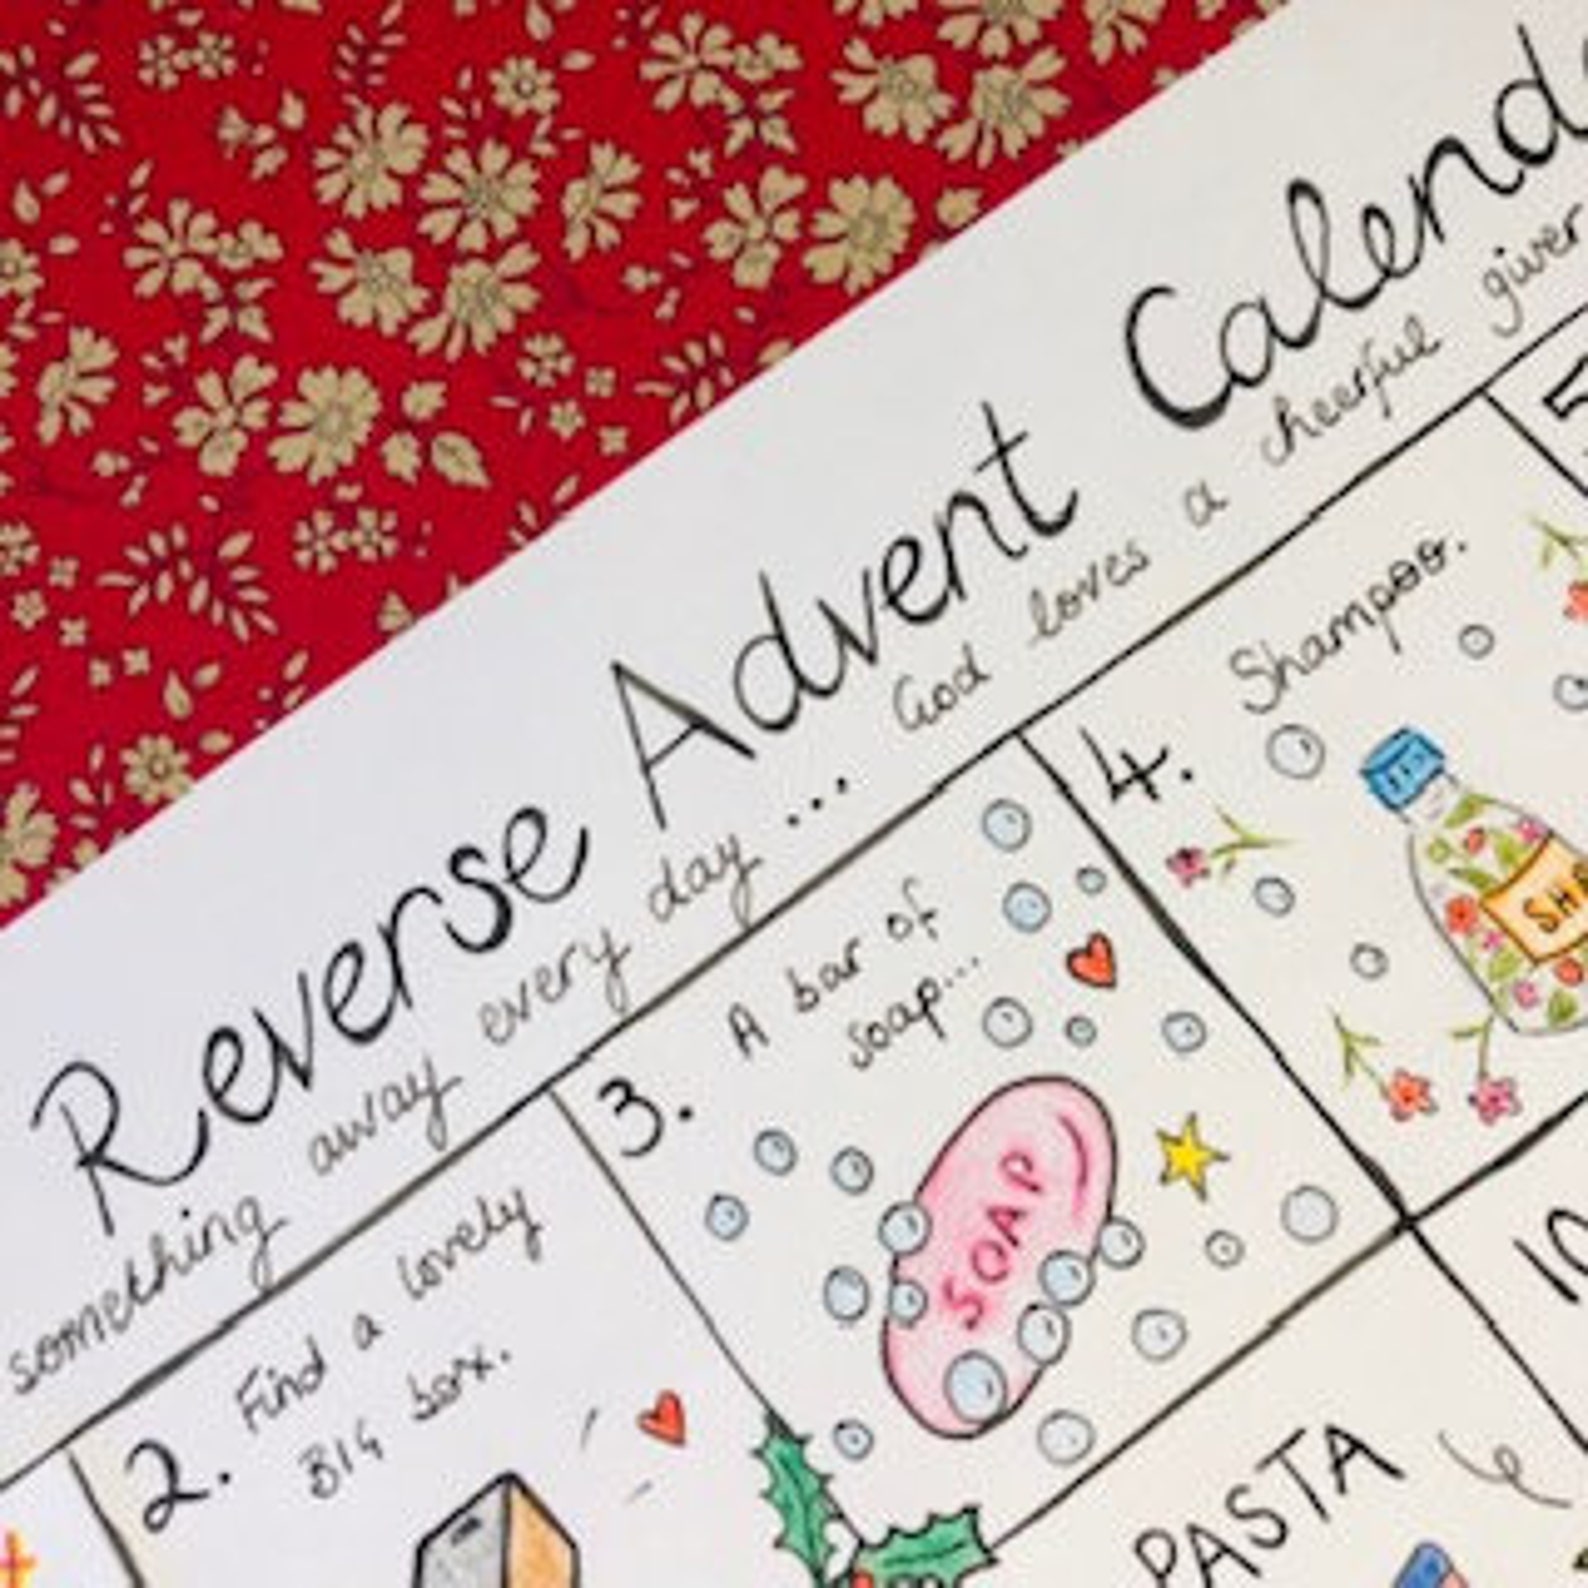 Reverse Advent Calend
something away every day ... God loves a cheerful giver
2. Find a lovely
BIG box.
3. A bar of
soap...
SOAP
4. Shampoo.
SH
5
10
PASTA